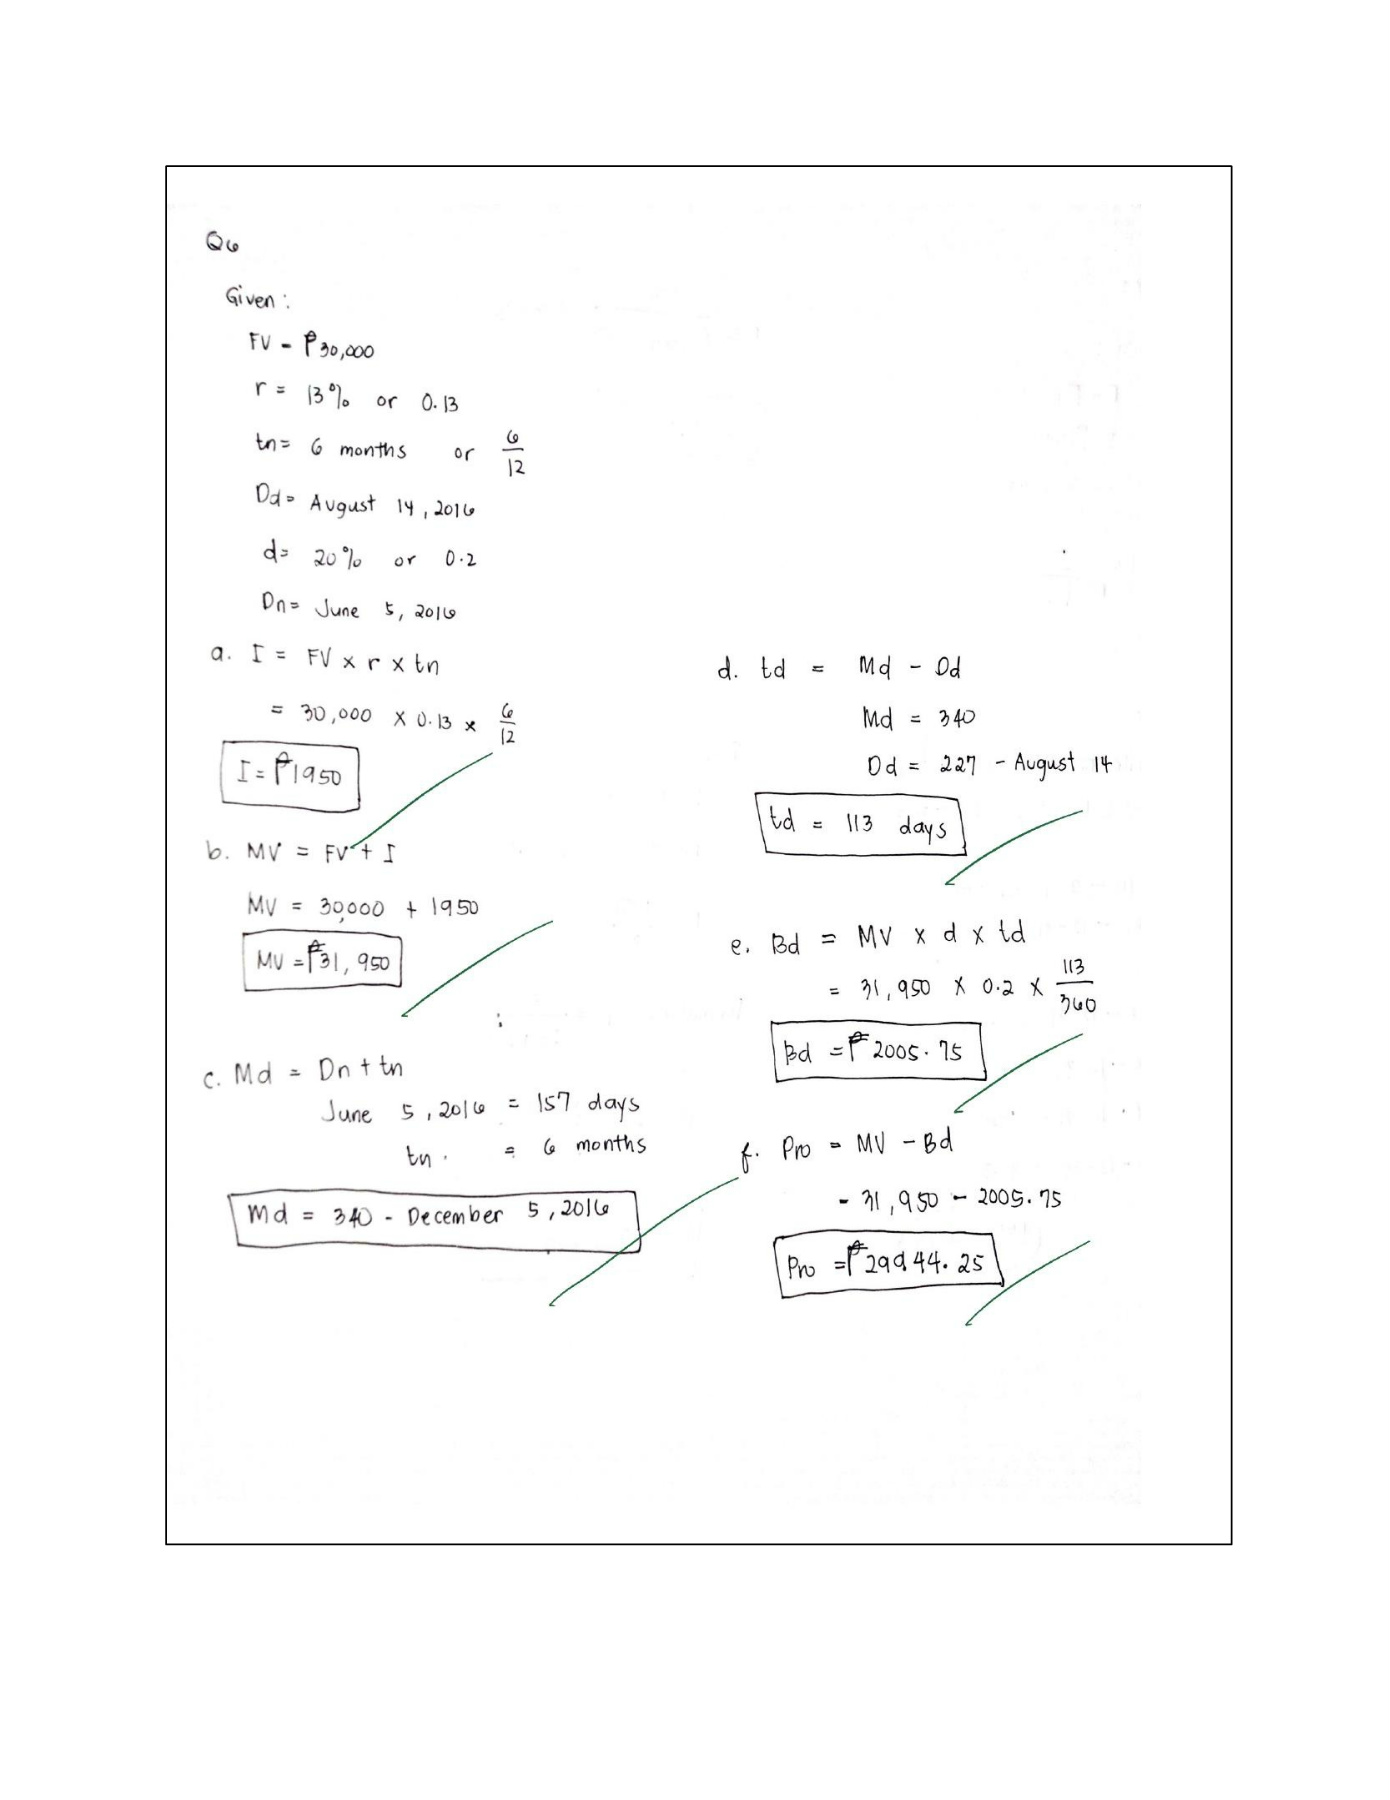 Q6
Given:
FV - ₱30,000
r = 13% or 0.13
tn = 6 months or 6/12
Dd = August 14, 2016
d = 20% or 0.2
Dn = June 5, 2016
a. I = FV x r x tn
= 30,000 x 0.13 x 6/12
I = ₱1950
b. MV = FV + I
MV = 30,000 + 1950
MV = ₱31,950
c. Md = Dn + tn
June 5, 2016 = 157 days
tn = 6 months
Md = 340 - December 5, 2016
d. td = Md - Dd
Md = 340
Dd = 227 - August 14
td = 113 days
e. Bd = MV x d x td
= 31,950 x 0.2 x 113/360
Bd = ₱2005.75
f. Pro = MV - Bd
- 31,950 - 2005.75
Pro = ₱29944.25